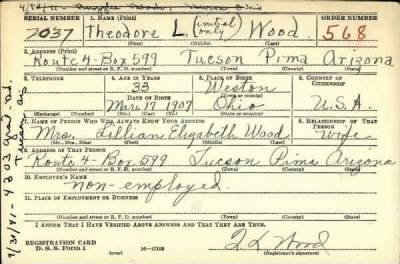 SERIAL NUMBER 1. NAME (Print) ORDER NUMBER
2037 Theodore L. (initial only) Wood 568
(First) (Middle) (Last)
2. ADDRESS (Print)
Route 4-Box 599 Tucson Pima Arizona
(Number and street or R. F. D. number) (Town) (County) (State)
3. TELEPHONE 4. AGE IN YEARS 5. PLACE OF BIRTH 6. COUNTRY OF CITIZENSHIP
33 Weston
DATE OF BIRTH (Town or county)
Mar. 17 1907 Ohio U.S.A.
(Exchange) (Number) (Mo.) (Day) (Yr.) (State or country)
7. NAME OF PERSON WHO WILL ALWAYS KNOW YOUR ADDRESS 8. RELATIONSHIP OF THAT PERSON
Mrs. Lillian Elizabeth Wood Wife
(Mr., Mrs., Miss) (First) (Middle) (Last)
9. ADDRESS OF THAT PERSON
Route 4-Box 599 Tucson Pima Arizona
(Number and street or R. F. D. number) (Town) (County) (State)
10. EMPLOYER'S NAME
non-employed
11. PLACE OF EMPLOYMENT OR BUSINESS
(Number and street or R. F. D. number) (Town) (County) (State)
I AFFIRM THAT I HAVE VERIFIED ABOVE ANSWERS AND THAT THEY ARE TRUE.
REGISTRATION CARD
D. S. S. Form 1 16—17105 (Registrant's signature)